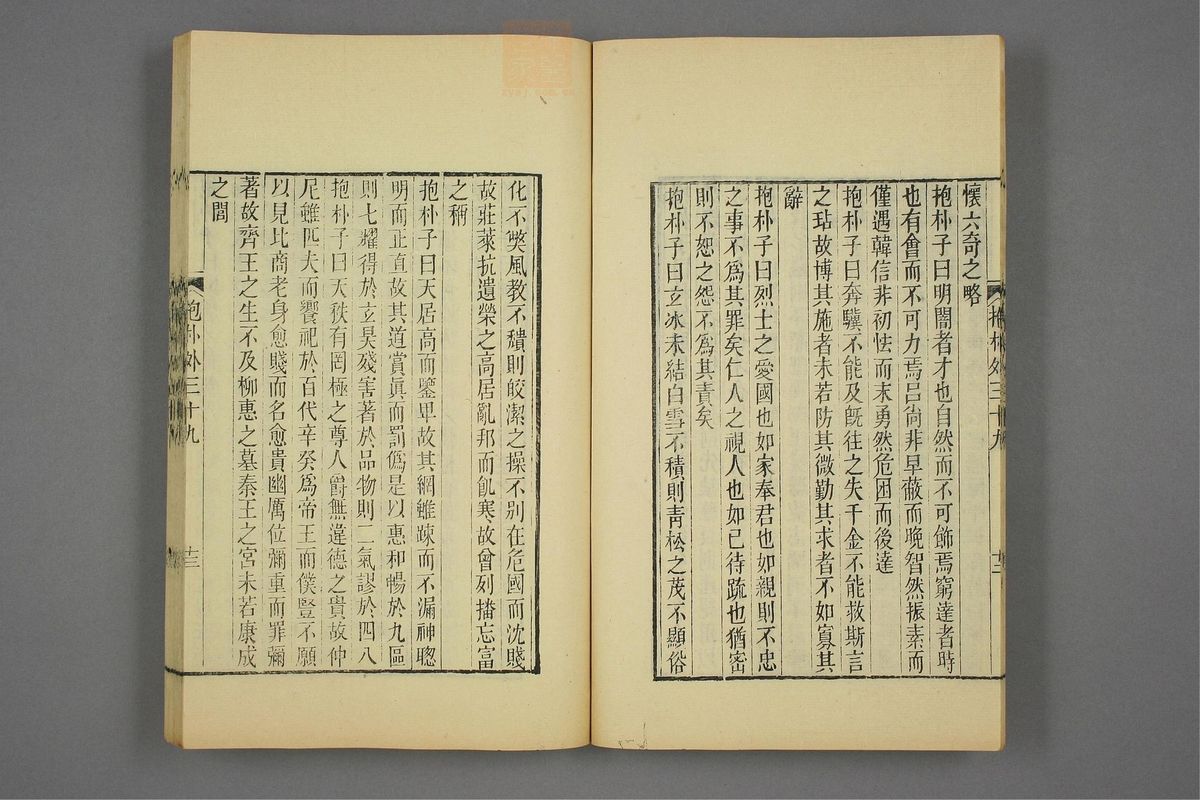 懷六奇之略
抱朴子曰明闇者才也自然而不可飾焉窮達者時
也有會而不可力焉呂尚非早蔽而晚智然振素而
僅遇韓信非初怯而末勇然危困而後達
抱朴子曰奔驥不能及旣往之失千金不能救斯言
之玷故博其施者未若防其微勤其求者不如寡其
辭
抱朴子曰烈士之愛國也如家奉君也如親則不忠
之事不爲其罪矣仁人之視人也如己待疏也猶密
則不恕之怨不爲其責矣
抱朴子曰玄冰未結白雪不積則靑松之茂不顯俗
抱朴外三十九
十二
化不獘風教不穨則皎潔之操不别在危國而沈賤
故莊萊抗遺榮之高居亂邦而飢寒故曾列播忘富
之稱
抱朴子曰天居高而鑒卑故其網雖踈而不漏神聰
明而正直故其道賞眞而罰僞是以惠和暢於九區
則七耀得於玄昊殘害著於品物則二氣謬於四八
抱朴子曰天秩有罔極之尊人爵無違德之貴故仲
尼雖匹夫而饗祀於百代辛癸爲帝王而僕豎不願
以見比商老身愈賤而名愈貴幽厲位彌重而罪彌
著故齊王之生不及柳惠之墓秦王之宮未若康成
之閭
抱朴外三十九
十三